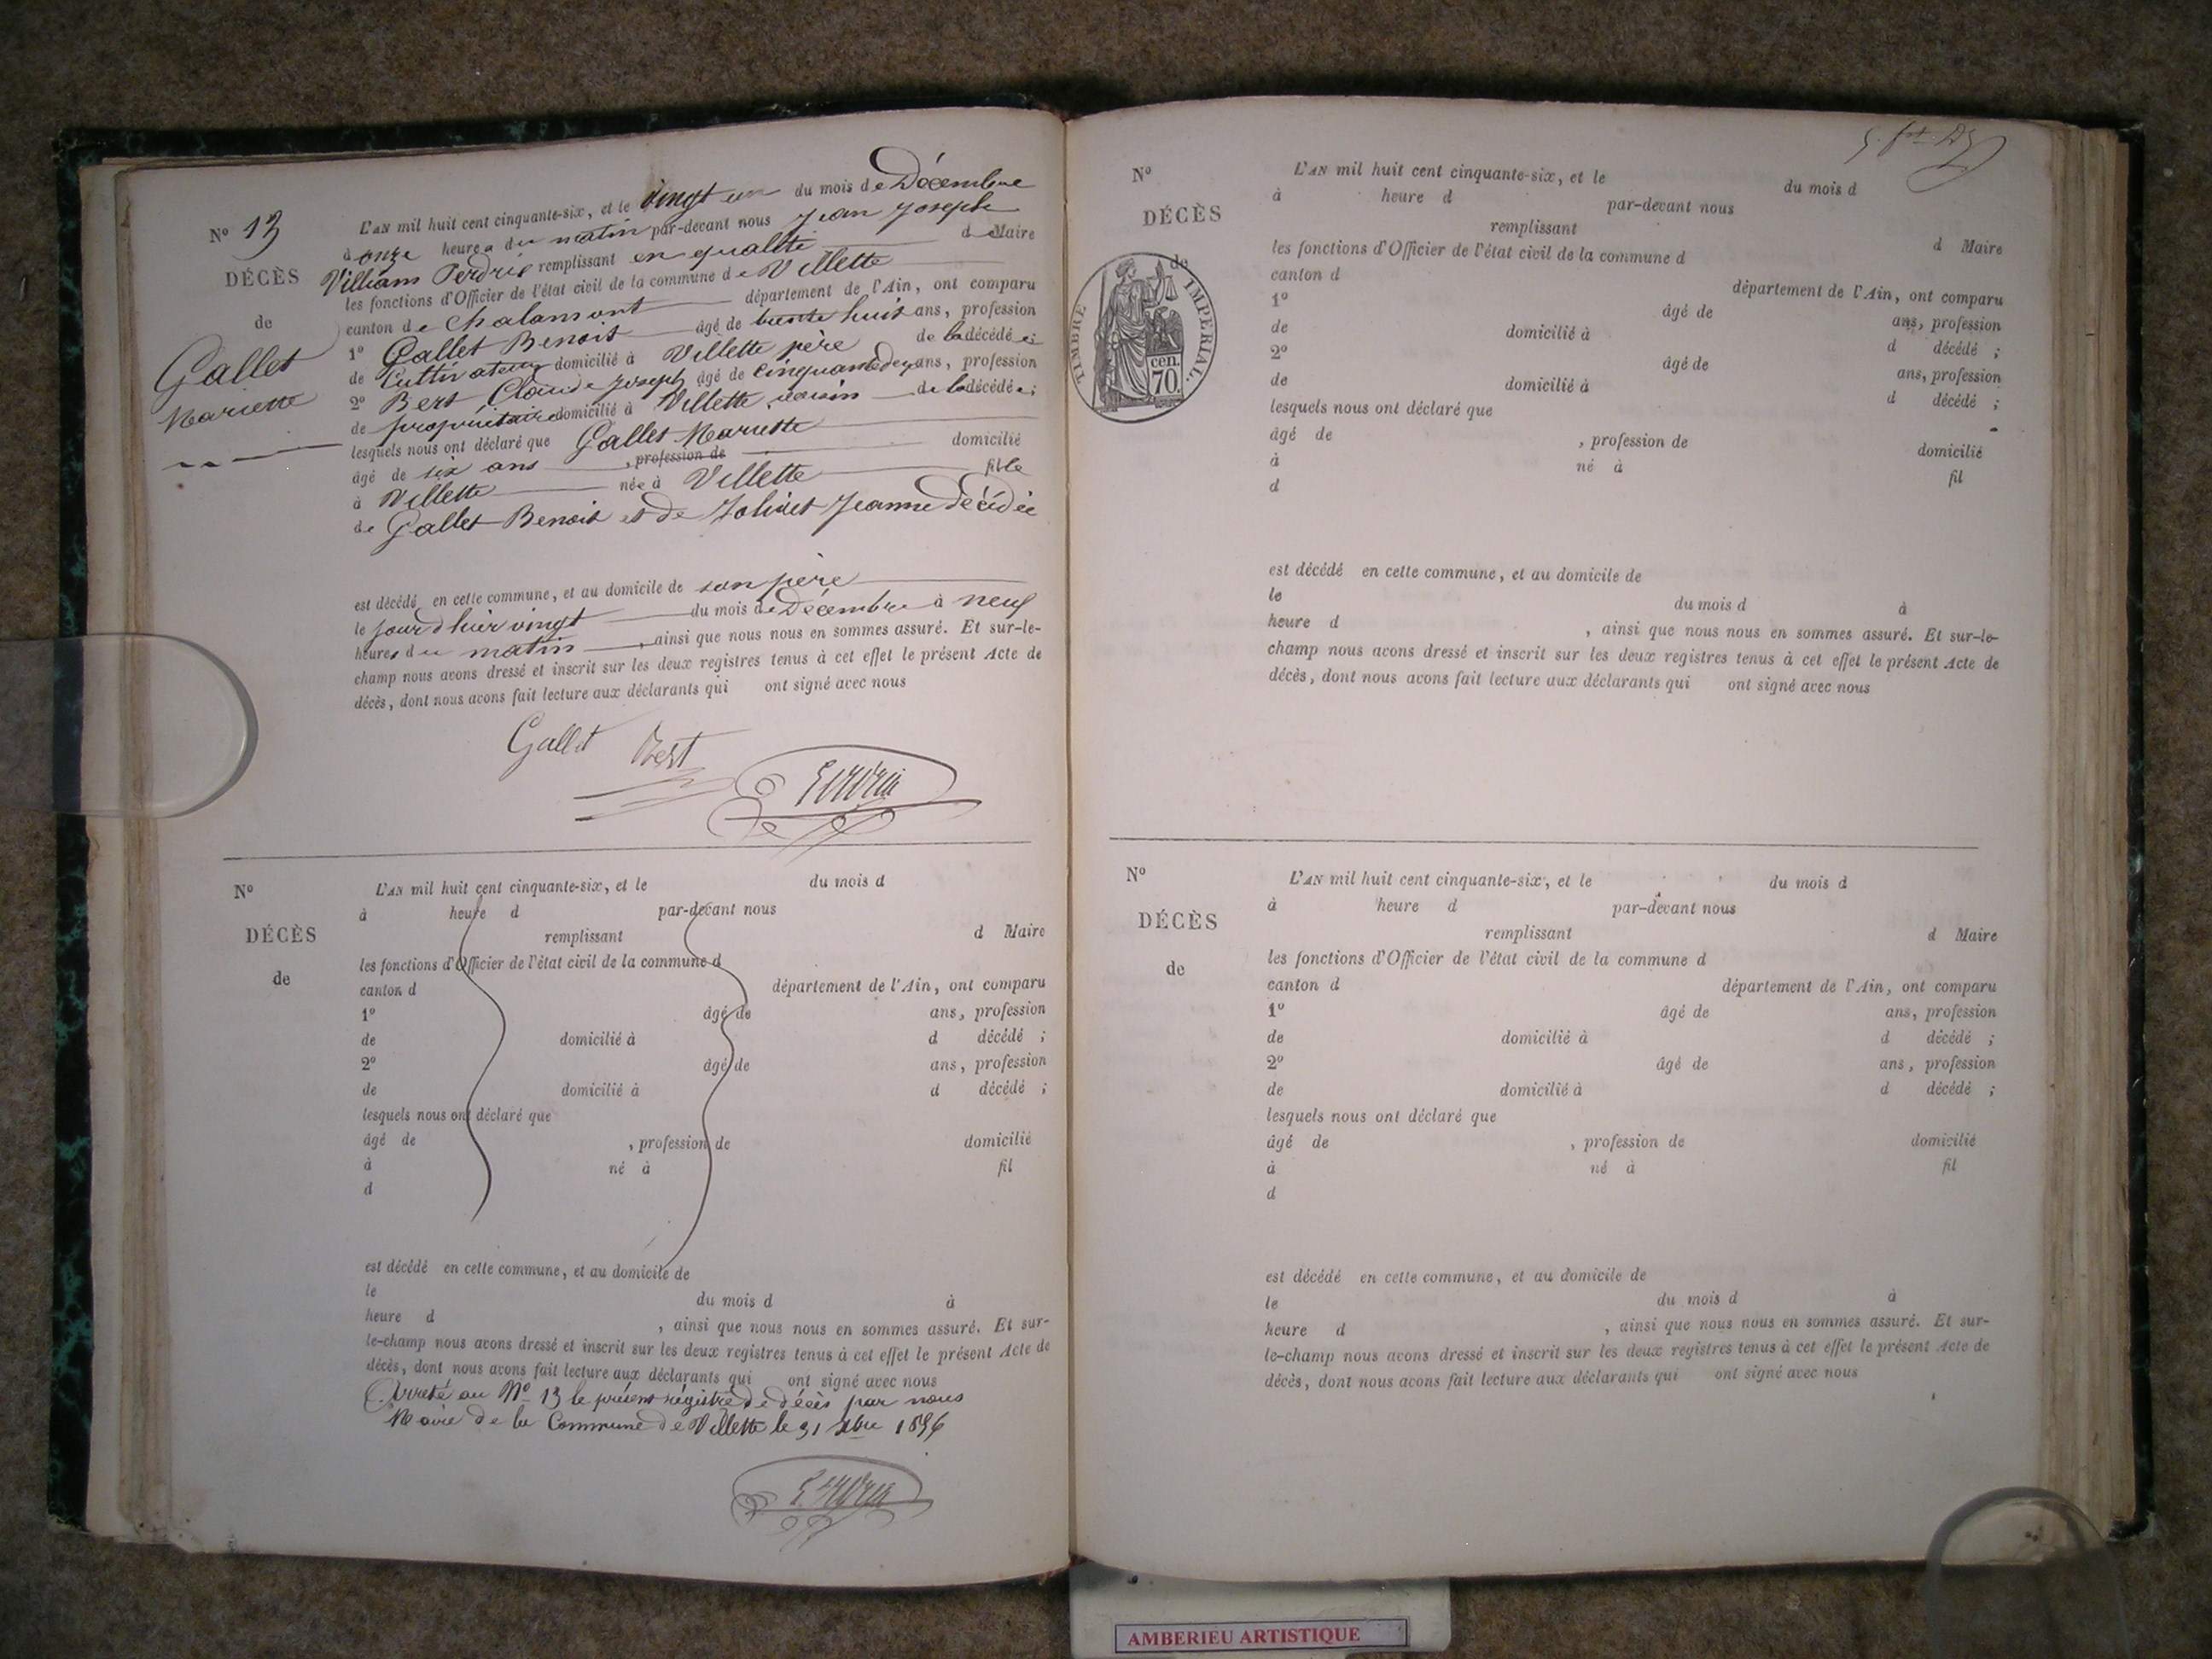 N° 13
DÉCÈS
de
Gallet
Mariette
L'AN mil huit cent cinquante-six, et le vingt un du mois de Décembre
à onze heures du matin par-devant nous Jean Joseph
Villiam Perdrix remplissant en qualité de Maire
les fonctions d'Officier de l'état civil de la commune de Villette
canton de Chalamont département de l'Ain, ont comparu
1° Gallet Benoit âgé de trente huit ans, profession
de Cultivateur domicilié à Villette père de la décédée;
2° Bert Claude Joseph âgé de cinquante deux ans, profession
de propriétaire domicilié à Villette voisin de la décédée;
lesquels nous ont déclaré que Gallet Mariette
âgé de six ans, profession de domicilié
à Villette née à Villette fille
de Gallet Benoit et de Jolivet Jeanne Décédée
est décédé en cette commune, et au domicile de son père
le jour d'hier vingt du mois de Décembre à neuf
heures du matin, ainsi que nous nous en sommes assuré. Et sur-le-
champ nous avons dressé et inscrit sur les deux registres tenus à cet effet le présent Acte de
décès, dont nous avons fait lecture aux déclarants qui ont signé avec nous
Gallet Bert Perdrix
N°
DÉCÈS
de
L'AN mil huit cent cinquante-six, et le du mois d
à heure d par-devant nous
remplissant d Maire
les fonctions d'Officier de l'état civil de la commune d
canton d département de l'Ain, ont comparu
1° âgé de ans, profession
de domicilié à d décédé ;
2° âgé de ans, profession
de domicilié à d décédé ;
lesquels nous ont déclaré que
âgé de , profession de domicilié
à né à fil
d
est décédé en cette commune, et au domicile de
le du mois d à
heure d , ainsi que nous nous en sommes assuré. Et sur-
le-champ nous avons dressé et inscrit sur les deux registres tenus à cet effet le présent Acte de
décès, dont nous avons fait lecture aux déclarants qui ont signé avec nous
Arreté au N° 13 le présent régistre de décès par nous
Maire de la Commune de Villette le 31 Xbre 1856
Perdrix
N°
DÉCÈS
de
TIMBRE IMPERIAL.
70 cen.
L'AN mil huit cent cinquante-six, et le du mois d
à heure d par-devant nous
remplissant d Maire
les fonctions d'Officier de l'état civil de la commune d
canton d département de l'Ain, ont comparu
1° âgé de ans, profession
de domicilié à d décédé ;
2° âgé de ans, profession
de domicilié à d décédé ;
lesquels nous ont déclaré que
âgé de , profession de domicilié
à né à fil
d
est décédé en cette commune, et au domicile de
le du mois d à
heure d , ainsi que nous nous en sommes assuré. Et sur-le-
champ nous avons dressé et inscrit sur les deux registres tenus à cet effet le présent Acte de
décès, dont nous avons fait lecture aux déclarants qui ont signé avec nous
N°
DÉCÈS
de
L'AN mil huit cent cinquante-six, et le du mois d
à heure d par-devant nous
remplissant d Maire
les fonctions d'Officier de l'état civil de la commune d
canton d département de l'Ain, ont comparu
1° âgé de ans, profession
de domicilié à d décédé ;
2° âgé de ans, profession
de domicilié à d décédé ;
lesquels nous ont déclaré que
âgé de , profession de domicilié
à né à fil
d
est décédé en cette commune, et au domicile de
le du mois d à
heure d , ainsi que nous nous en sommes assuré. Et sur-
le-champ nous avons dressé et inscrit sur les deux registres tenus à cet effet le présent Acte de
décès, dont nous avons fait lecture aux déclarants qui ont signé avec nous
AMBERIEU ARTISTIQUE